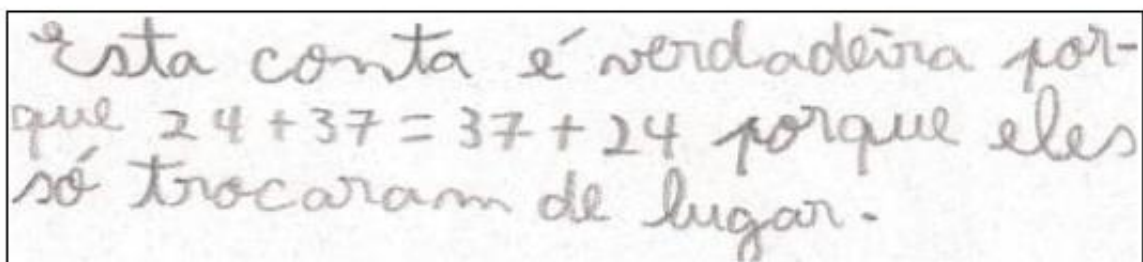 Esta conta é verdadeira por-
que 24 + 37 = 37 + 24 porque eles
só trocaram de lugar.